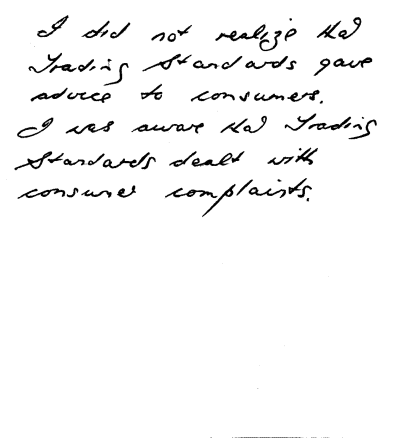 I did not realize that
Trading Standards gave
advice to consumers.
I was aware that Trading
Standards dealt with
consumer complaints.